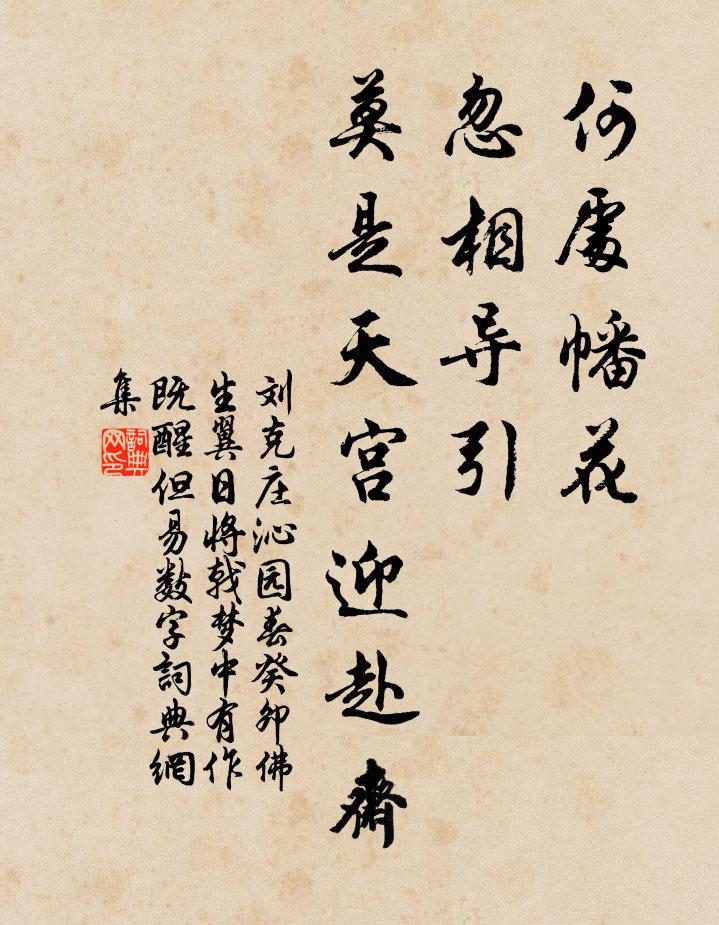 何處幡花
忽相导引
莫是天宫迎赴齋
刘克庄沁园春癸卯佛
生翼日将戟梦中有作
既醒但易数字詞典網
集
詞典
网印